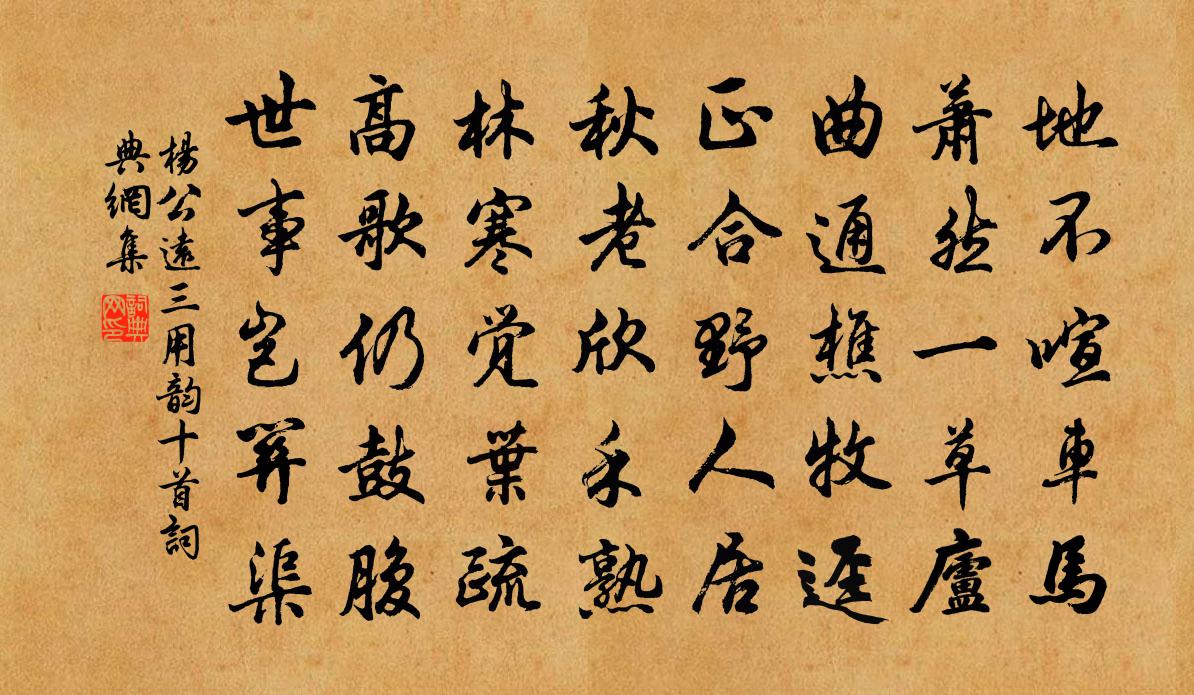 地不喧車馬
蕭然一草廬
曲通樵牧逕
正合野人居
秋老欣禾熟
林寒覺葉疏
高歌仍鼓腹
世事豈關渠
楊公遠三用韵十首詞
典網集
詞典网印